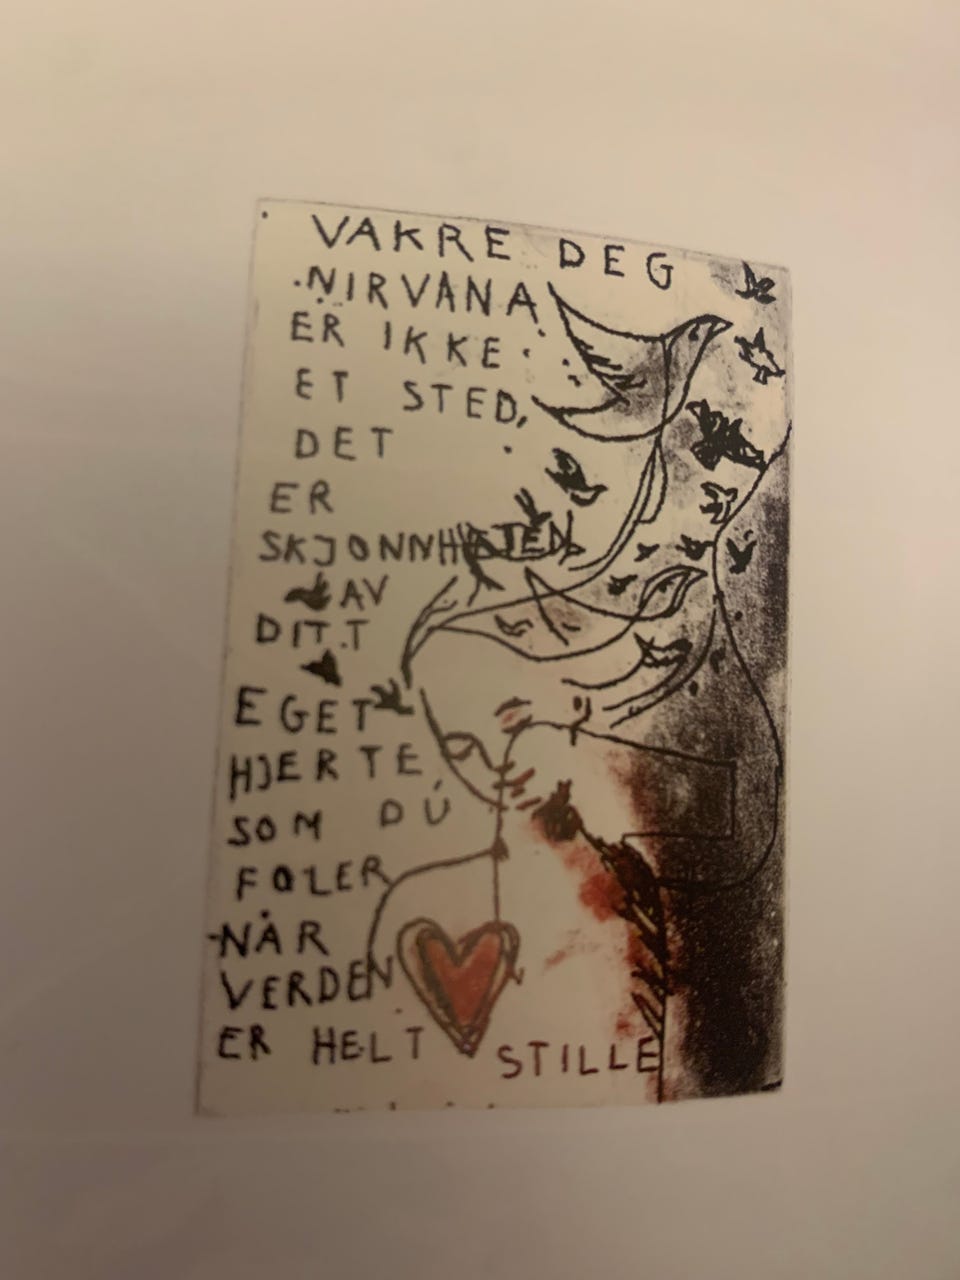 VAKRE DEG
NIRVANA
ER IKKE
ET STED,
DET
ER
SKJONNHETEN
AV
DITT
EGET
HJERTE,
SOM DU
FOLER
NÅR
VERDEN
ER HELT STILLE